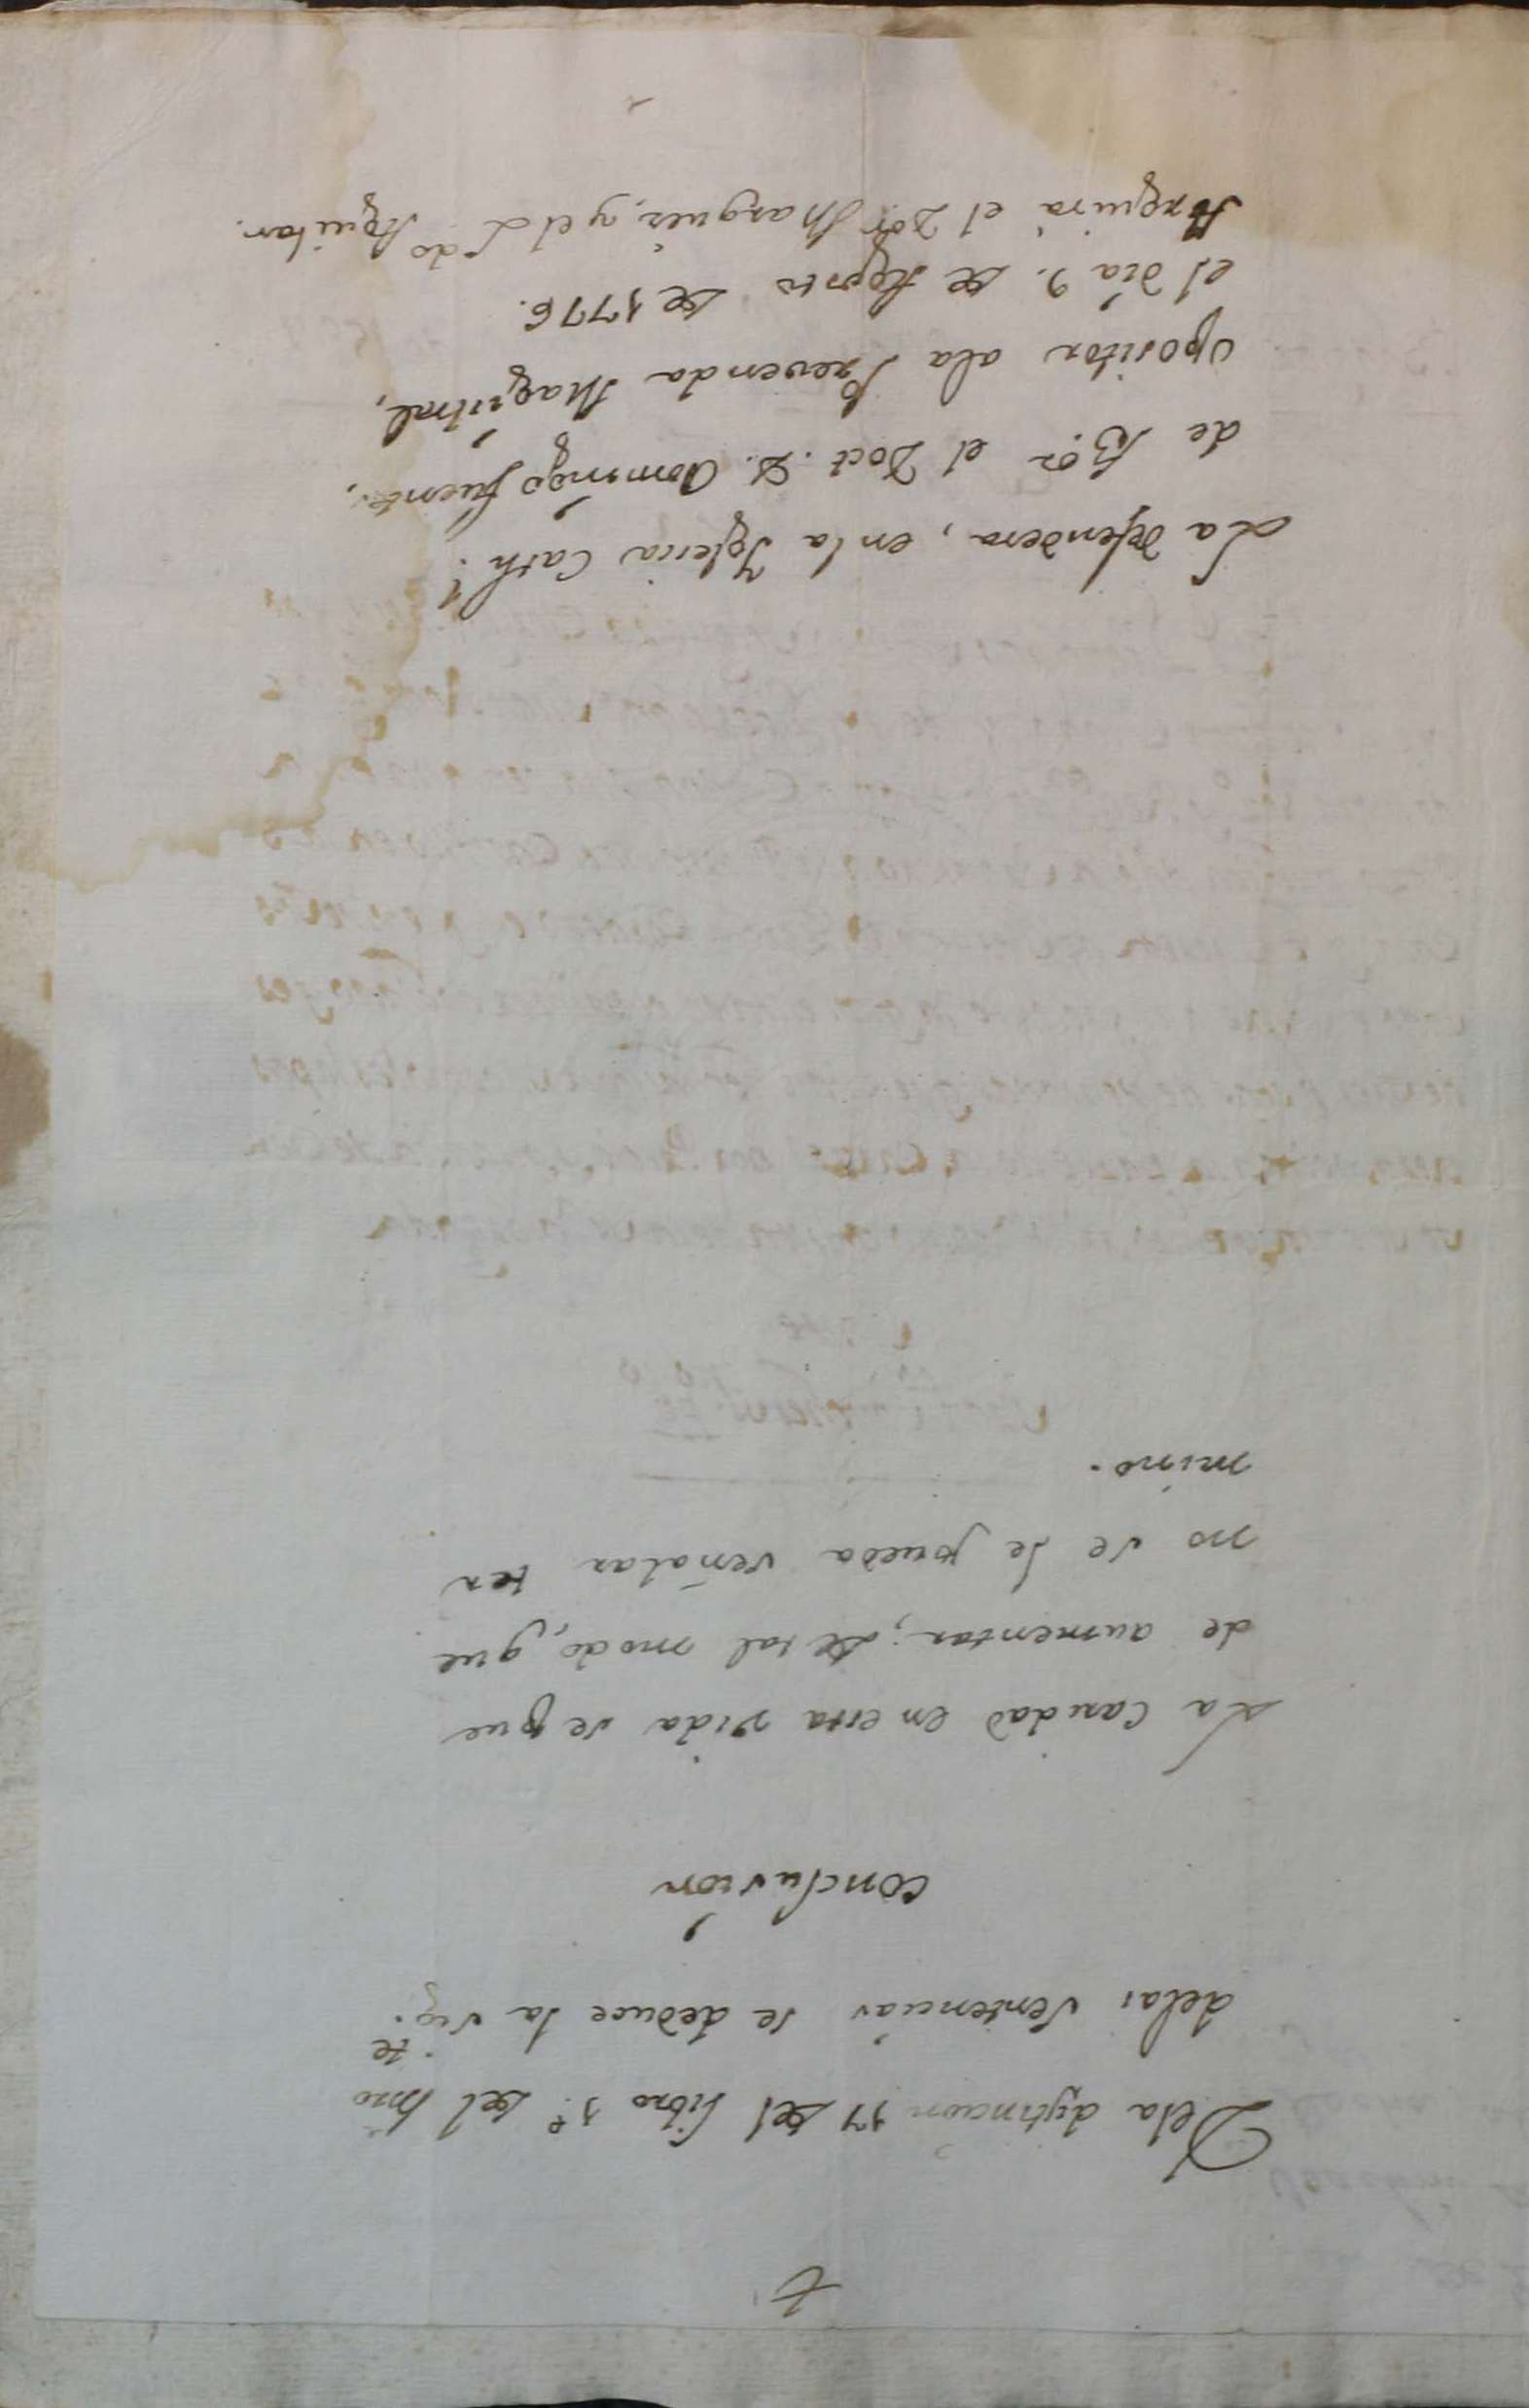 †
Dela dystincion 17 del libro 1º del mro
delas Sentencias se deduce la sig.te
conclusion
La Caridad en esta vida se pue
de aumentar, de tal modo, que
no se le pueda señalar ter
mino.
La defendera, en la Yglesia Cath.l
de el Doct. D. Domingo fuentes,
opositor ala Prevenda Magistral,
el dia 9. de Agosto de 1776.
Arguira el Dor. Marques, y el Ldo Aguilar.